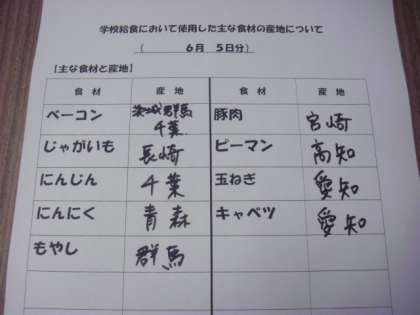 学校給食において使用した主な食材の産地について
( 6月 5日分)
【主な食材と産地】
食 材 産 地 食 材 産 地
ベーコン 茨城 群馬 千葉 豚肉 宮崎
じゃがいも 長崎 ピーマン 高知
にんじん 千葉 玉ねぎ 愛知
にんにく 青森 キャベツ 愛知
もやし 群馬